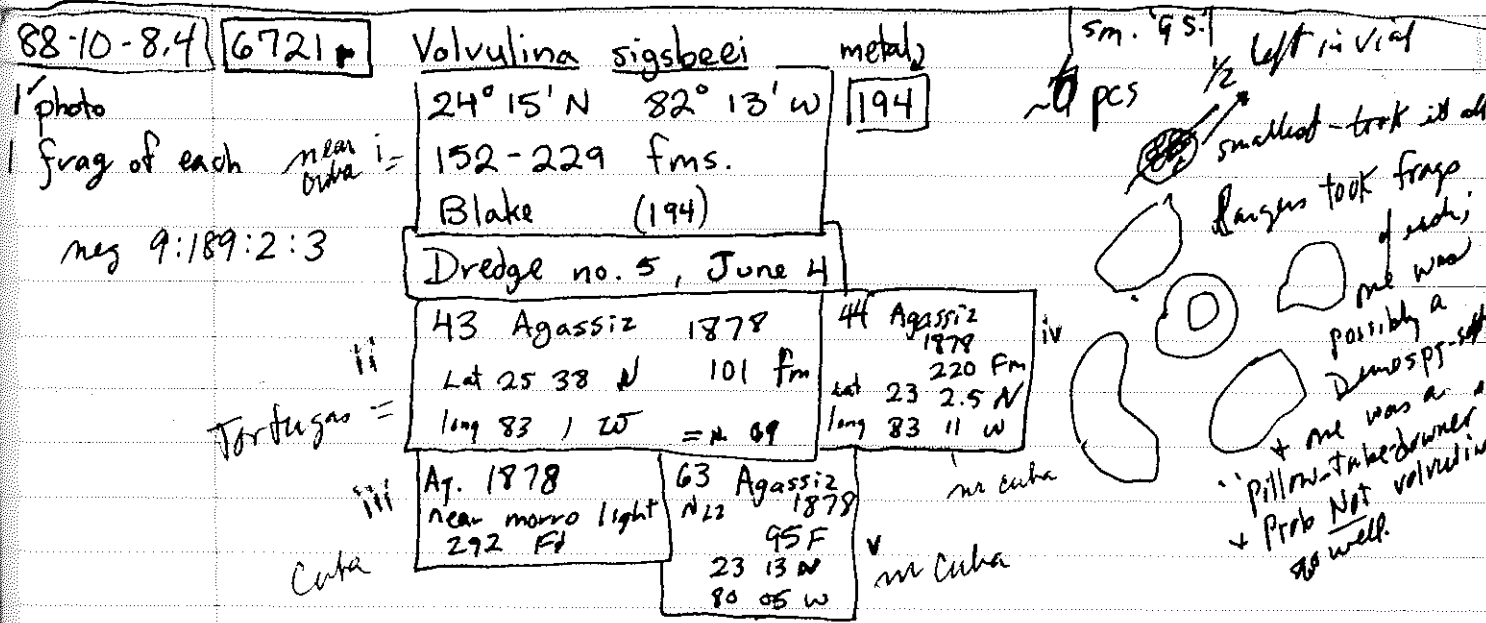 88-10-8.4 6721 Volvulina sigsbeei metal sm. G.S.
1 photo
1 frag of each
near cuba i =
24° 15' N 82° 13' W
152-229 fms.
Blake (194)
194
neg 9:189:2:3
Dredge no. 5, June 4
ii
Tortugas =
43 Agassiz 1878
Lat 25 38 N 101 fm
long 83 1 W = N 69
44 Agassiz
1878
220 Fm
Lat 23 2.5 N
long 83 11 W
iv
nr cuba
iii
Cuba
Ag. 1878
near morro light
292 Fd
63 Agassiz
1878
95 F
23 13 N
80 05 W
v
nr Cuba
pcs
1/2 left in vial
smallest - took it all
took frags
of each;
one was
possibly a
+ one was a
+ Prob Not
as well.